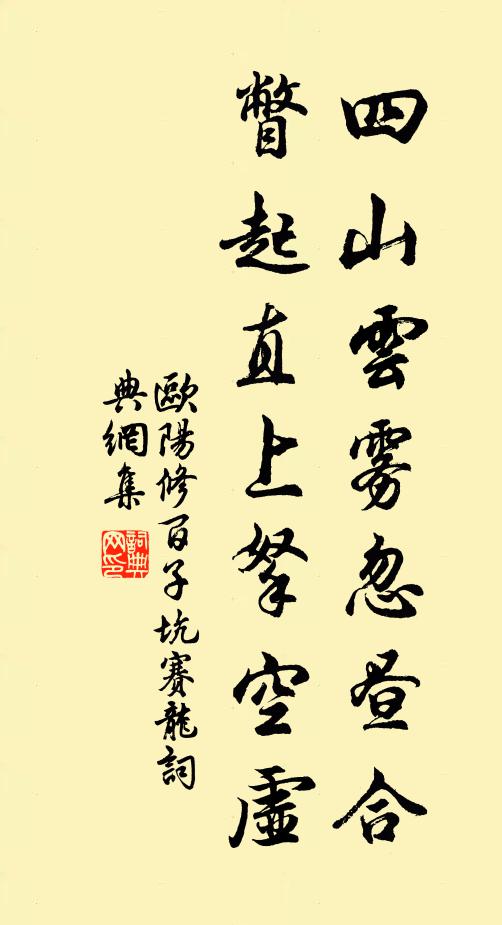 四山雲雾忽昼合
瞥起直上拏空虛
歐陽修百子坑賽龍詞
典網集
詞典
网印